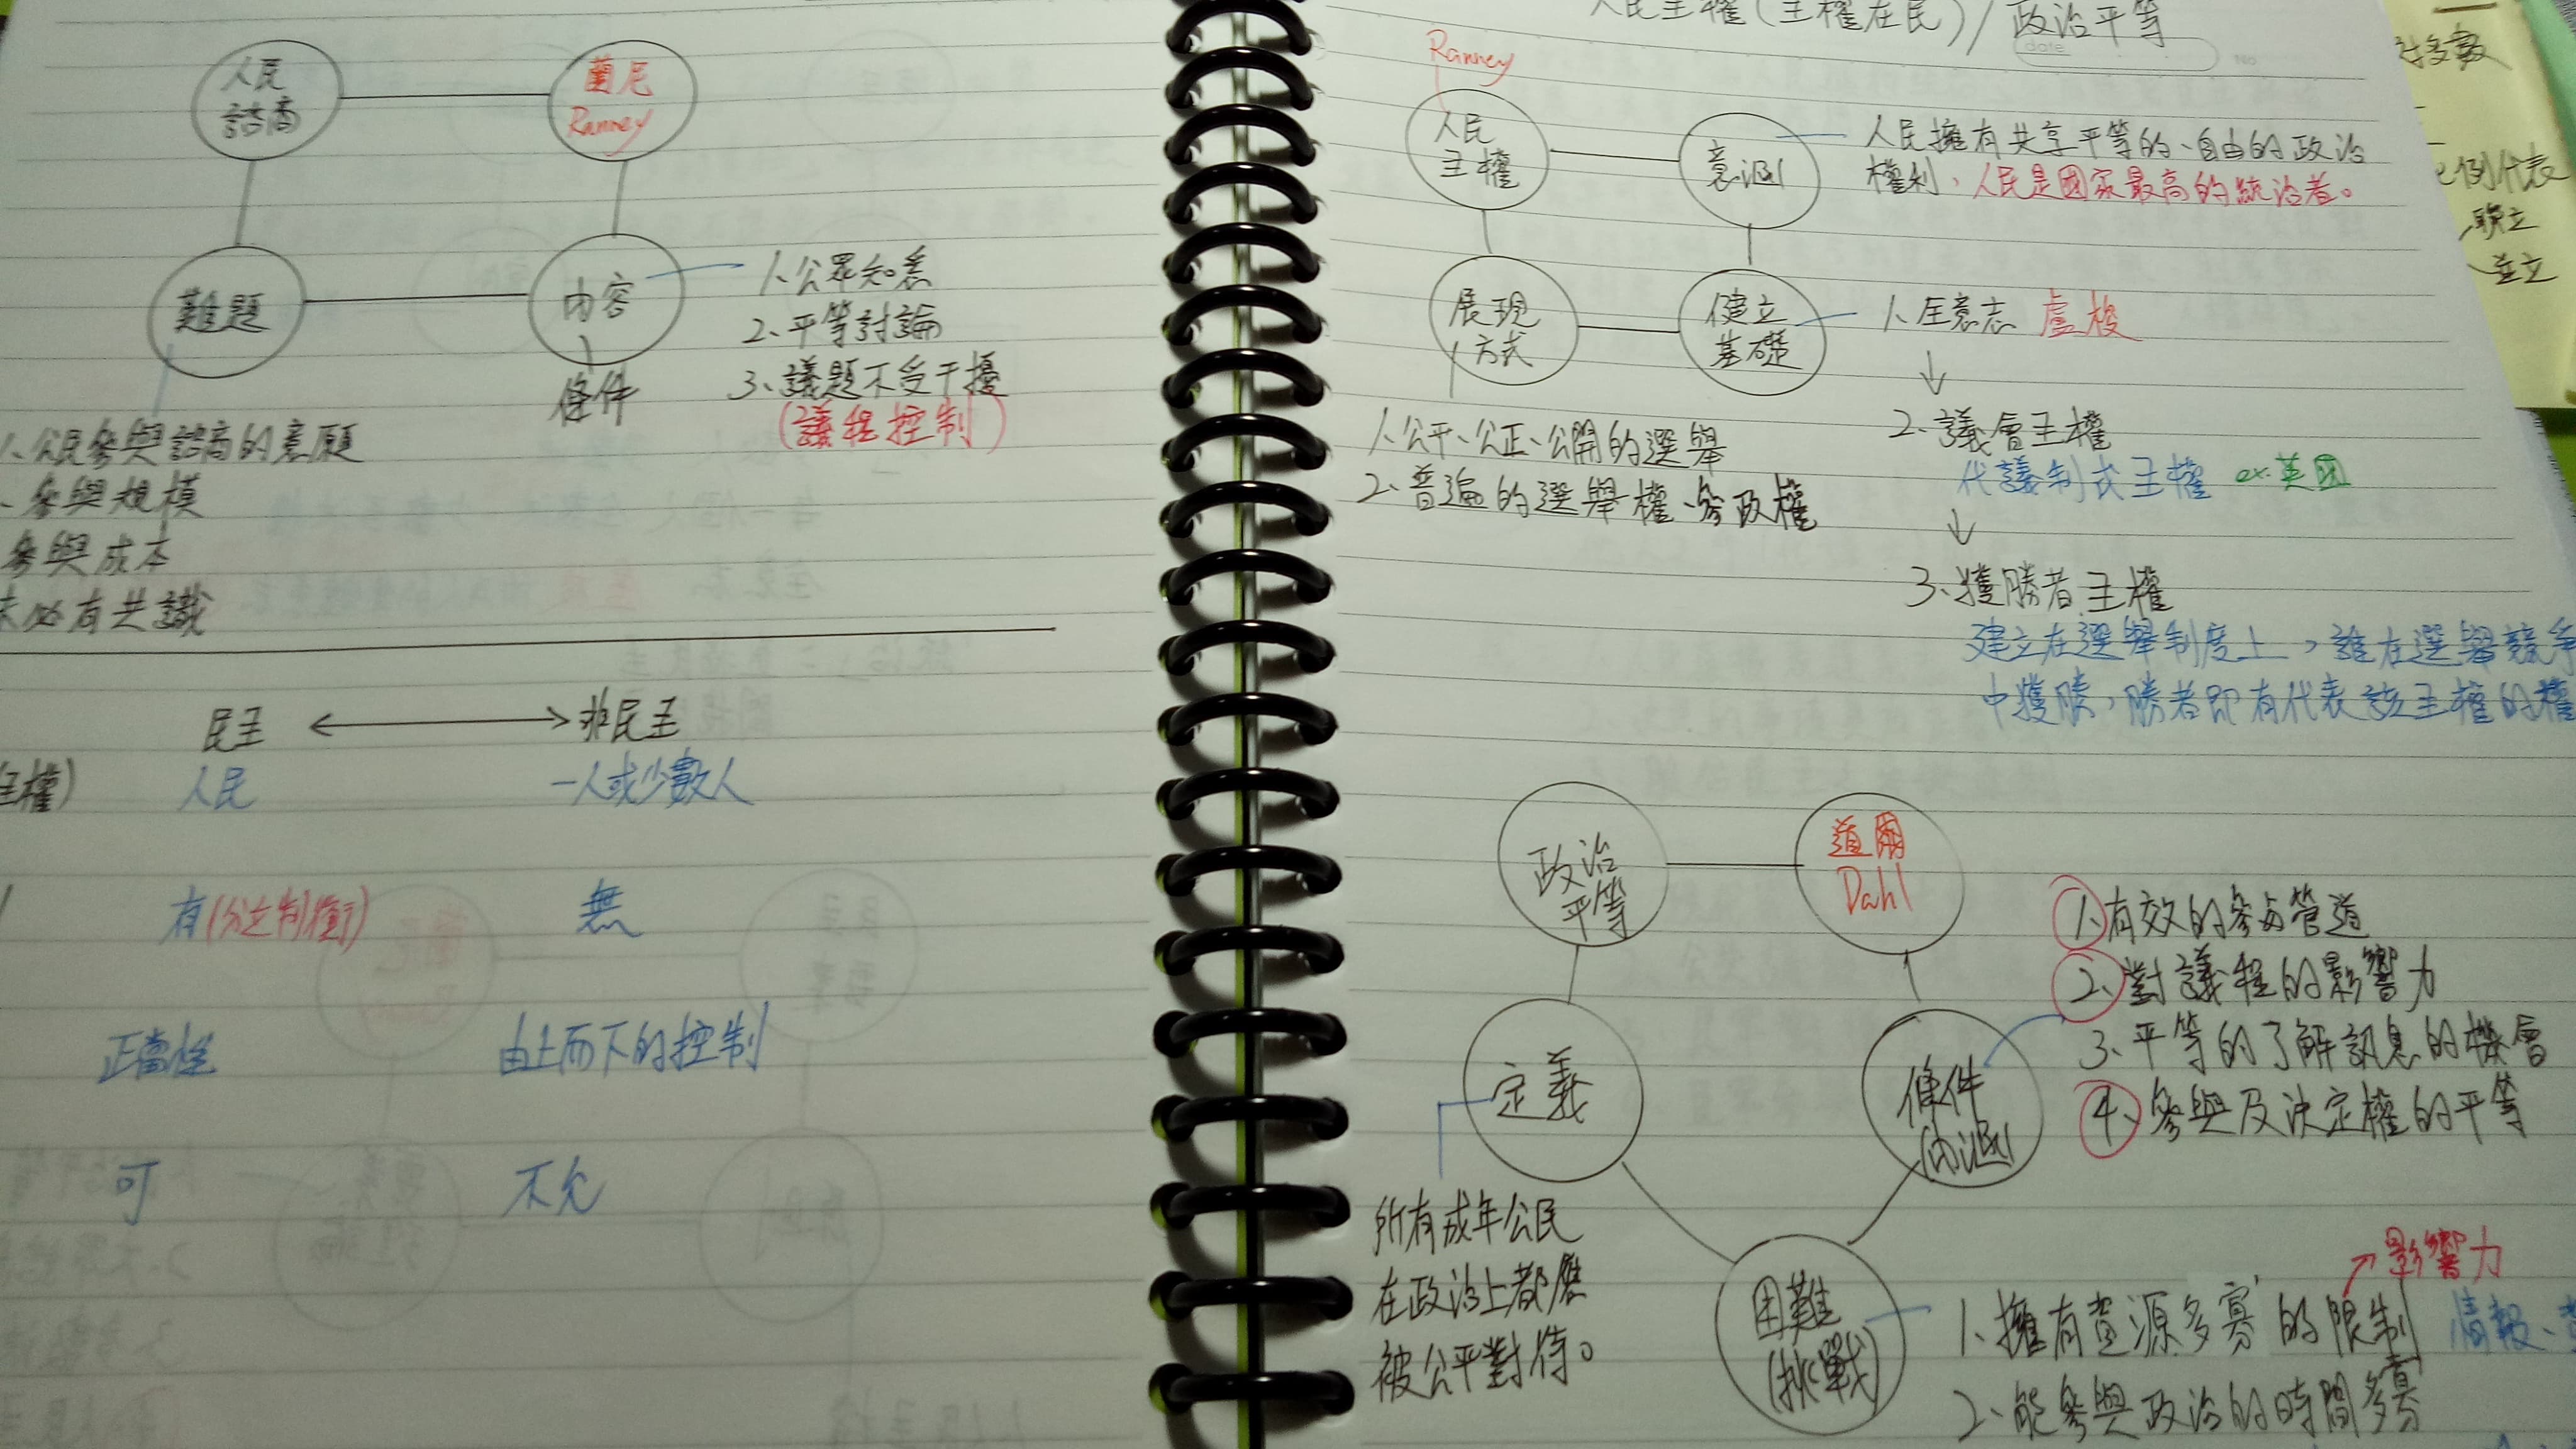 人民
諮商
蘭尼
Ranney
難題
內容
條件
1、公眾知悉
2、平等討論
3、議題不受干擾
(議程控制)
1、公民參與諮商的意願
、參與規模
參與成本
未必有共識
民主 ⟷ 非民主
主權) 人民 一人或少數人
有(分立制衡) 無
正當性 由上而下的控制
可 不允
人民主權(主權在民)/政治平等
date
No
Ranney
人民
主權
意涵
人民擁有共享平等的、自由的政治
權利、人民是國家最高的統治者。
展現
方式
建立
基礎
1、公平、公正、公開的選舉
2、普遍的選舉權、參政權
1、全意志 盧梭
↓
2、議會主權
代議制式主權 ex:英國
↓
3、獲勝者主權
建立在選舉制度上,誰在選舉競爭
中獲勝,勝者即有代表該主權的權
政治
平等
道爾
Dahl
定義
條件
(內涵)
困難
(挑戰)
所有成年公民
在政治上都應
被公平對待。
1、有效的參与管道
2、對議程的影響力
3、平等的了解訊息的機會
4、參與及決定權的平等
→影響力
1、擁有資源多寡的限制 情報、
2、能參與政治的時間多寡
多數
例代表
聯立
並立